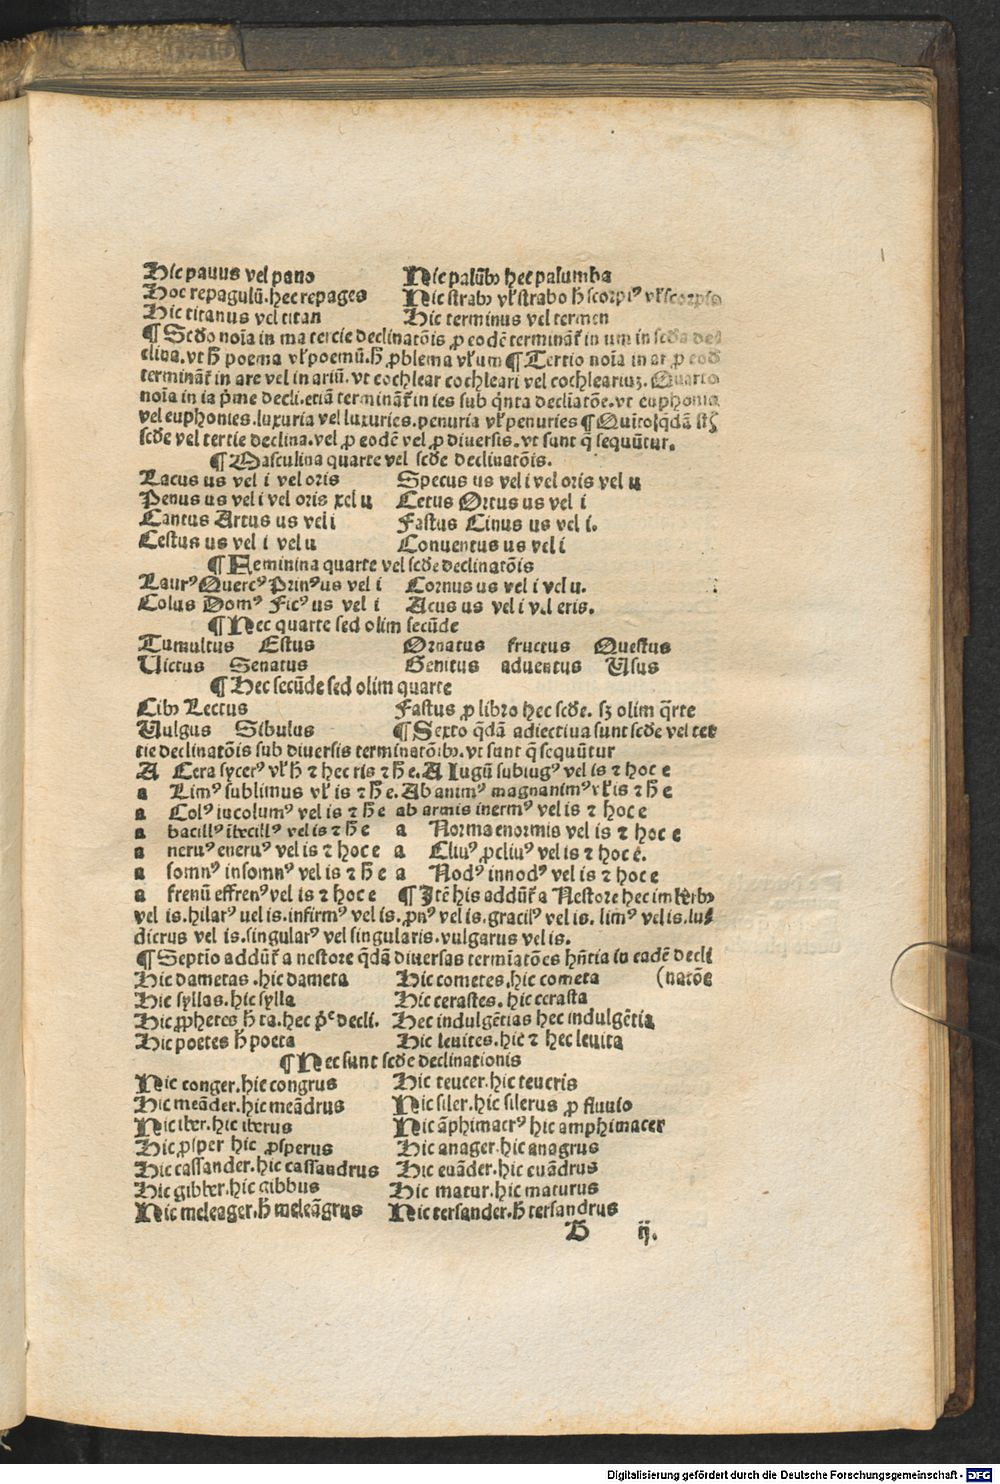 Hic pauus vel pano Hic palūbꝫ hec palumba
Hoc repagulū.hec repages Hic strabꝫ vl̓ strabo h̄ scorpi⁹ vl̓ scorpio
Hic titanus vel titan Hic terminus vel termen
¶ Scđo noīa in ma tercie declinatōis ꝓ eodē terminãt̓ in um in scđa de-
clina.vt h̄ poema vl̓ poemū.h̄ ꝓblema vl̓ um ¶ Tertio noīa in ar ꝓ eođ
terminãt̓ in are vel in ariū.vt cochlear cochleari vel cochleariuꝫ. Quarto
noīa in ia p̄me decli.etiā terminãt̓ in ies sub q̄nta decliatōe.vt euphonia
vel euphonies.luxuria vel luxuries.penuria vl̓ penuries ¶ Quīto q̄dā st̄
scđe vel tertie declina.vel ꝓ eodē vel ꝓ diuersis.vt sunt q̄ sequūtur.
¶ Masculina quarte vel scđe declinatōis.
Lacus us vel i vel oris Specus us vel i vel oris vel u
Penus us vel i vel oris xel u Cetus Ortus us vel i
Cantus Artus us vel i Fastus Cinus us vel i.
Cestus us vel i vel u Conuentus us vel i
¶ Feminina quarte vel scđe declinatōis
Laur⁹ Querc⁹ Prin⁹ us vel i Cornus us vel i vel u.
Colus Dom⁹ Fic⁹ us vel i Acus us vel i vel eris.
¶ Hec quarte sed olim secūde
Tumultus Estus Ornatus fructus Questus
Uictus Senatus Genitus aduentus Usus
¶ Hec secūde sed olim quarte
Cibꝫ Lectus Fastus ꝓ libro hec scđe. sꝫ olim q̄rte
Uulgus Sibulus ¶ Sexto q̄dā adiectiua sunt scđe vel ter
tie declinatōis sub diuersis terminatōibꝫ.vt sunt q̄ sequūtur
A Cera sycer⁹ vl̓ h̄ ⁊ hec ris ⁊ h̄ e. A Iugū subiug⁹ vel is ⁊ hoc e
a Lim⁹ sublimus vl̓ is ⁊ h̄ e. Ab anim⁹ magnanim⁹ vl̓ is ⁊ h̄ e
a Col⁹ incolum⁹ vel is ⁊ h̄ e ab armis inerm⁹ vel is ⁊ hoc e
a bacill⁹ ībecill⁹ vel is ⁊ h̄ e a Norma enormis vel is ⁊ hoc e
a neru⁹ eneru⁹ vel is ⁊ hoc e a Cliu⁹ ꝓcliu⁹ vel is ⁊ hoc e.
a somn⁹ insomn⁹ vel is ⁊ h̄ e a Nod⁹ innod⁹ vel is ⁊ hoc e
a frenū effren⁹ vel is ⁊ hoc e ¶ Itē his addūt̓ a Nestore hec imberbꝫ
vel is.hilar⁹ uel is.infirm⁹ vel is.ꝓn⁹ vel is.gracil⁹ vel is. lim⁹ vel is.lu-
dicrus vel is.singular⁹ vel singularis.vulgarus vel is.
¶ Septio addūt̓ a nestore q̄dā diuersas termīatōes hn̄tia in eadē decli
Hic dametas.hic dameta Hic cometes.hic cometa (natōe
Hic syllas.hic sylla Hic cerastes.hic cerasta
Hic ꝓphetes h̄ ta.hec p̄ᵉ decli. Hec indulgētias hec indulgētia
Hic poetes h̄ poeta Hic leuites.hic ⁊ hec leuita
¶ Hec sunt scđe declinationis
Hic conger.hic congrus Hic teucer.hic teucris
Hic meāder.hic meādrus Hic siler.hic silerus ꝓ fluuio
Hic iber.hic iberus Hic āphimacr⁹ hic amphimacer
Hic ꝓsper hic ꝓsperus Hic anager.hic anagrus
Hic cassander.hic cassandrus Hic euāder.hic euādrus
Hic gibber.hic gibbus Hic matur.hic maturus
Hic meleager.h̄ meleāgrus Hic tersander.h̄ tersandrus
B ij.
Digitalisierung gefördert durch die Deutsche Forschungsgemeinschaft - DFG